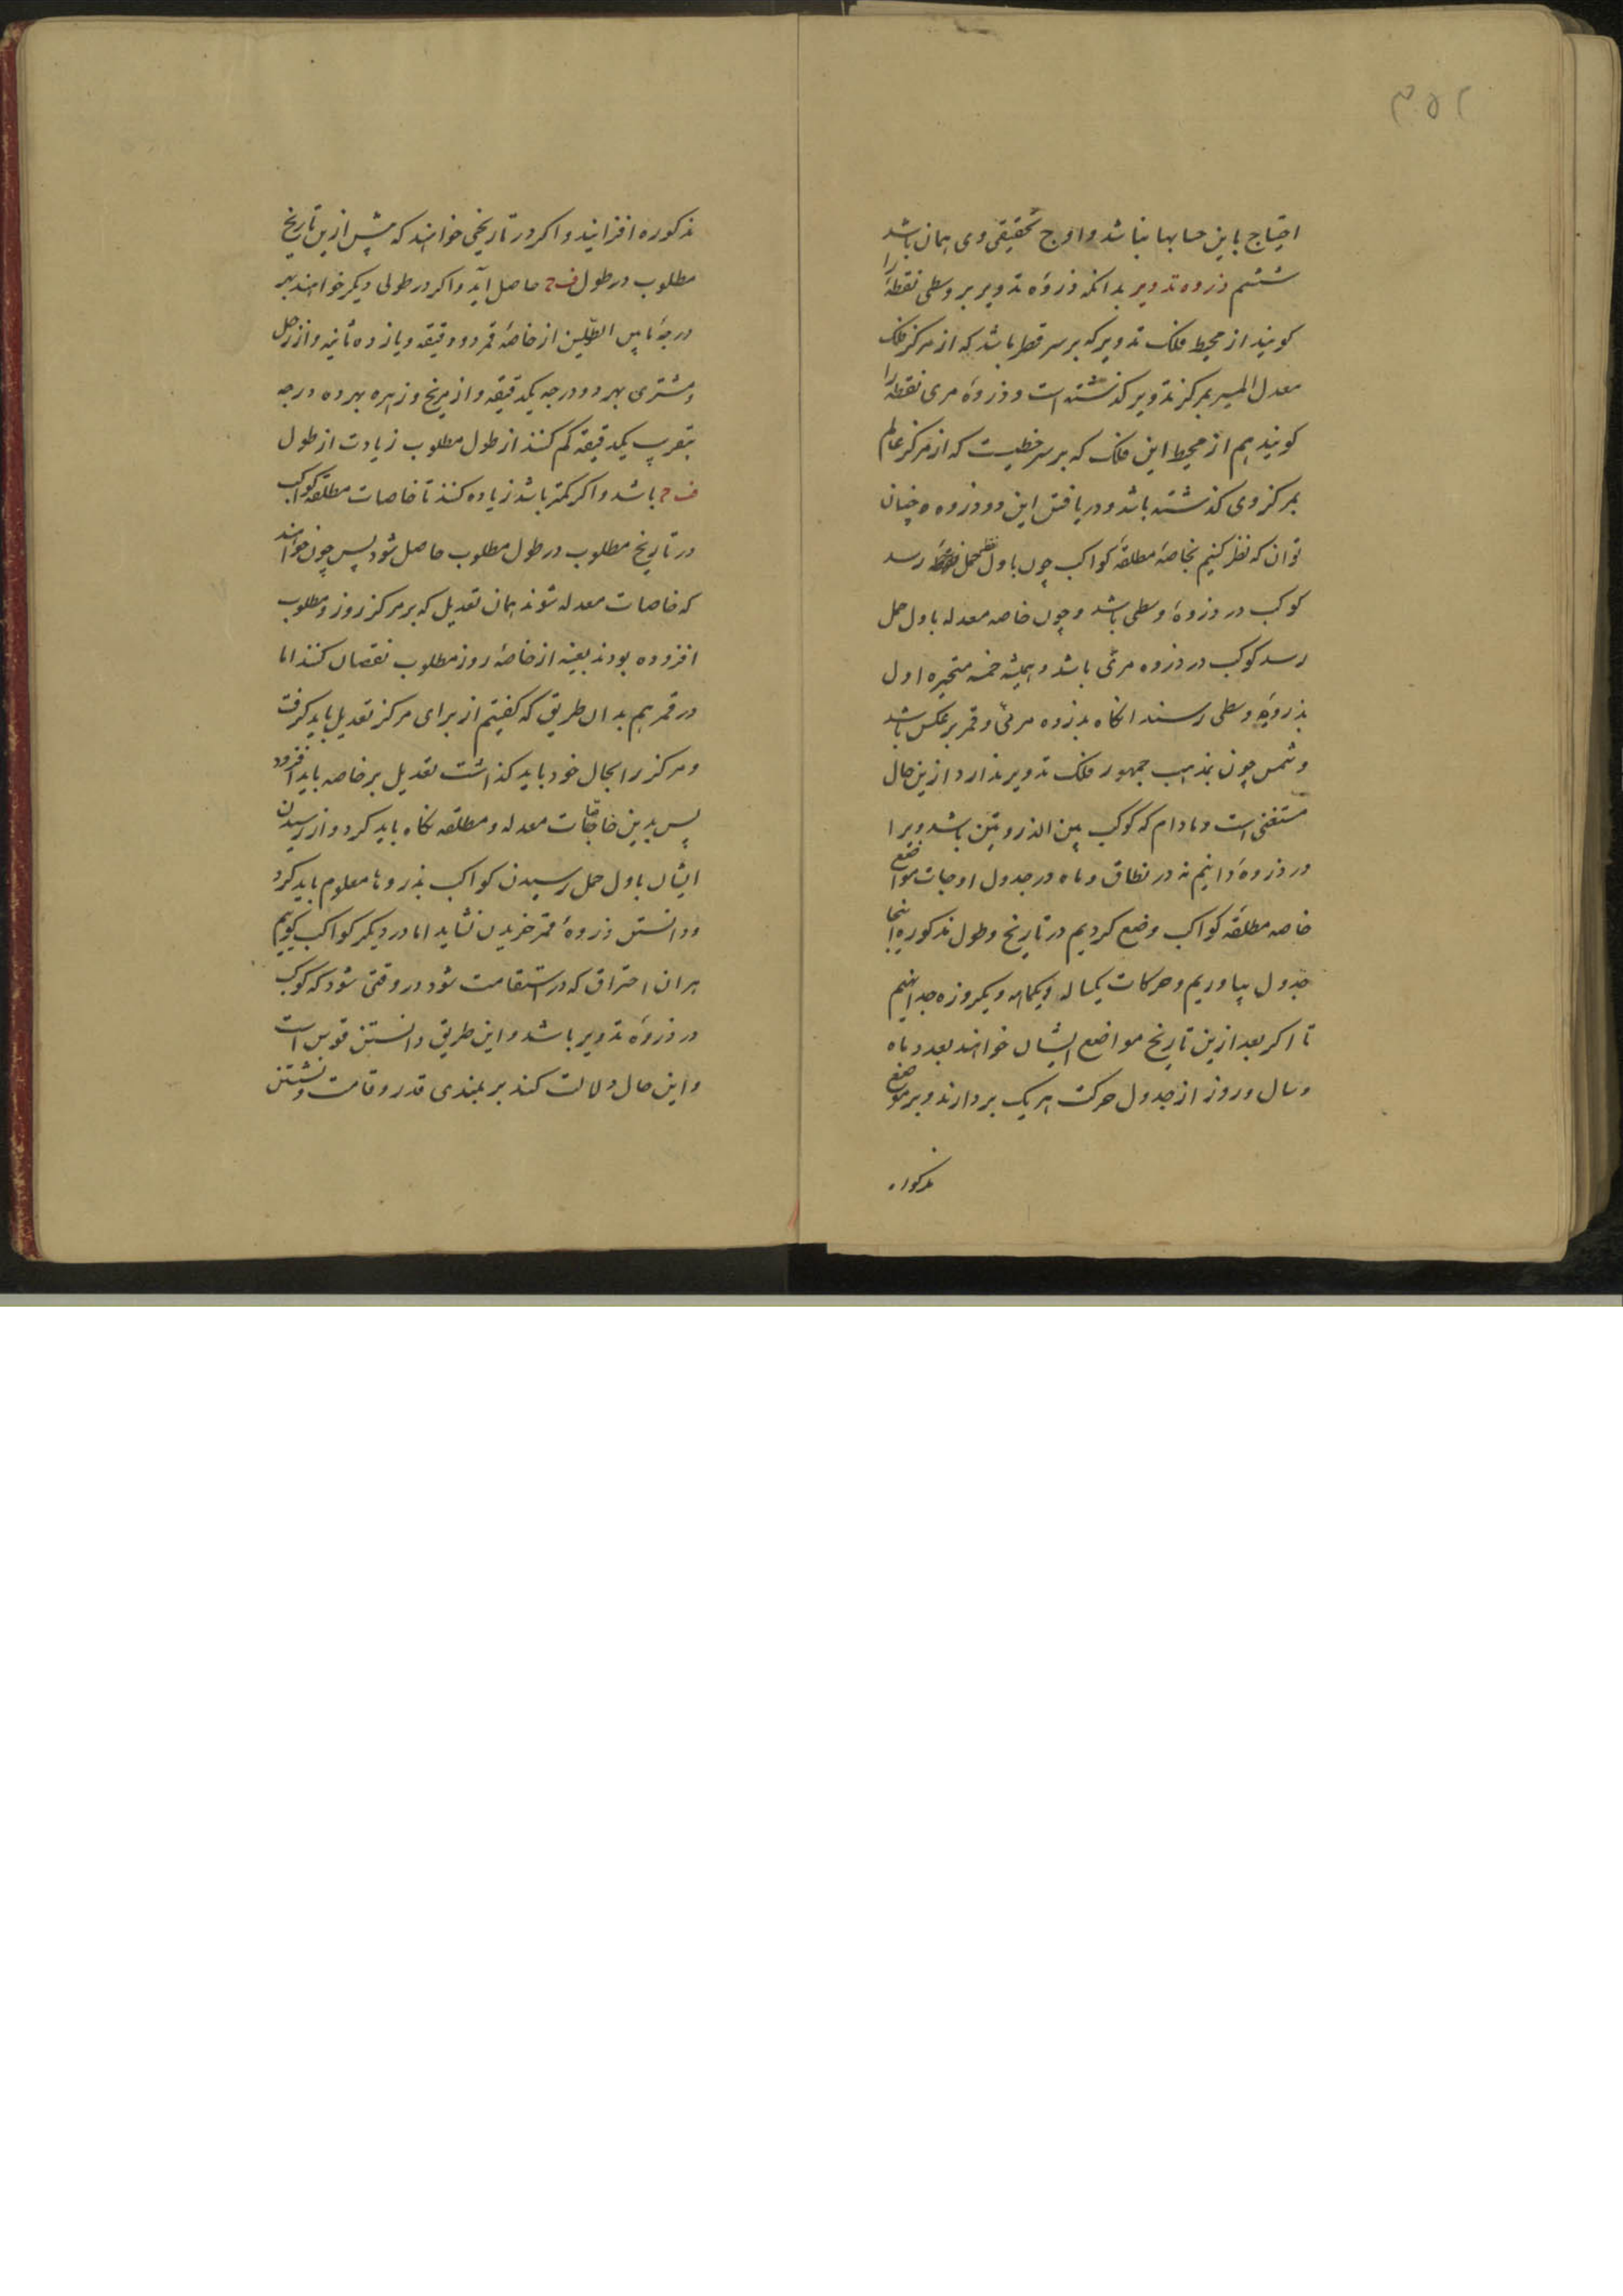 ۳۵۲
احتیاج باین حسابها نباشد و اوج تحقیقی وی همان باشد
ششم ذروه تدویر بدانکه ذروهٔ تدویر بر وسطی نقطهٔ را
کویند از محیط فلک تدویر که بر سر قطر باشد که از مرکز فلک
معدل المسیر بمرکز تدویر کذشته است و ذروهٔ مری نقطهٔ را
کویند هم از محیط این فلک که بر سر خطیست که از مرکز عالم
بمرکز وی کذشته باشد و دریافتن این دو ذروه چنان
توان که نظر کنیم بخاصهٔ مطلقهٔ کواکب چون باول حمل رسد
کوکب در ذروهٔ وسطی باشد و چون خاصه معدله باول حمل
رسد کوکب در ذروه مرئی باشد و همیشه خمسه متحیره اول
بذروهٔ وسطی رسند انکاه بذروه مرئی و قمر برعکس باشد
و شمس چون بمذهب جمهور فلک تدویر ندارد ازین حال
مستغنی است و مادام که کوکب بین الذروتین باشد ویرا
در ذروهٔ دانیم نه در نطاق و ماه در جدول اوجات مواضع
خاصه مطلقهٔ کواکب وضع کردیم در تاریخ و طول مذکوره اینجا
جدول بیاوریم و حرکات یکساله و یکماهه و یکروزه جدا نهیم
تا اکر بعد ازین تاریخ مواضع ایشان خواهند بعدد ماه
و سال و روز از جدول حرکت هر یک بردارند و بر مواضع
مذکوره
مذکوره افزایند و اکر در تاریخی خواهند که پیش ازین تاریخ
مطلوب در طول ف ح حاصل آید و اکر در طولی دیکر خواهند بهر
درجهٔ مابین الطولین از خاصهٔ قمر دو دقیقه و یازده ثانیه و از زحل
و مشتری بهر دو درجه یکدقیقه و از مریخ و زهره بهر ده درجه
بتقریب یکدقیقه کم کنند از طول مطلوب زیادت از طول
ف ح باشد و اکر کمتر باشد زیاده کنند تا خاصات مطلقهٔ کواکب
در تاریخ مطلوب در طول مطلوب حاصل شود پس چون خواهند
که خاصات معدله شوند همان تعدیل که بر مرکز روز مطلوب
افزوده بودند بعینه از خاصهٔ روز مطلوب نقصان کنند اما
در قمر هم بدان طریق که کفتیم از برای مرکز تعدیل باید کرفت
و مرکز را بحال خود باید کذاشت تعدیل بر خاصه باید افزود
پس بدین خاصات معدله و مطلقه نکاه باید کرد و از رسیدن
ایشان باول حمل رسیدن کواکب بذروها معلوم باید کرد
و دانستن ذروهٔ قمر جز بدین نشاید اما در دیکر کواکب کوییم
هر ان احتراق که در استقامت شود در وقتی شود که کوکب
در ذروهٔ تدویر باشد و این طریق دانستن قوس است
و این حال دلالت کند بر بلندی قدر و قامت و نشستن